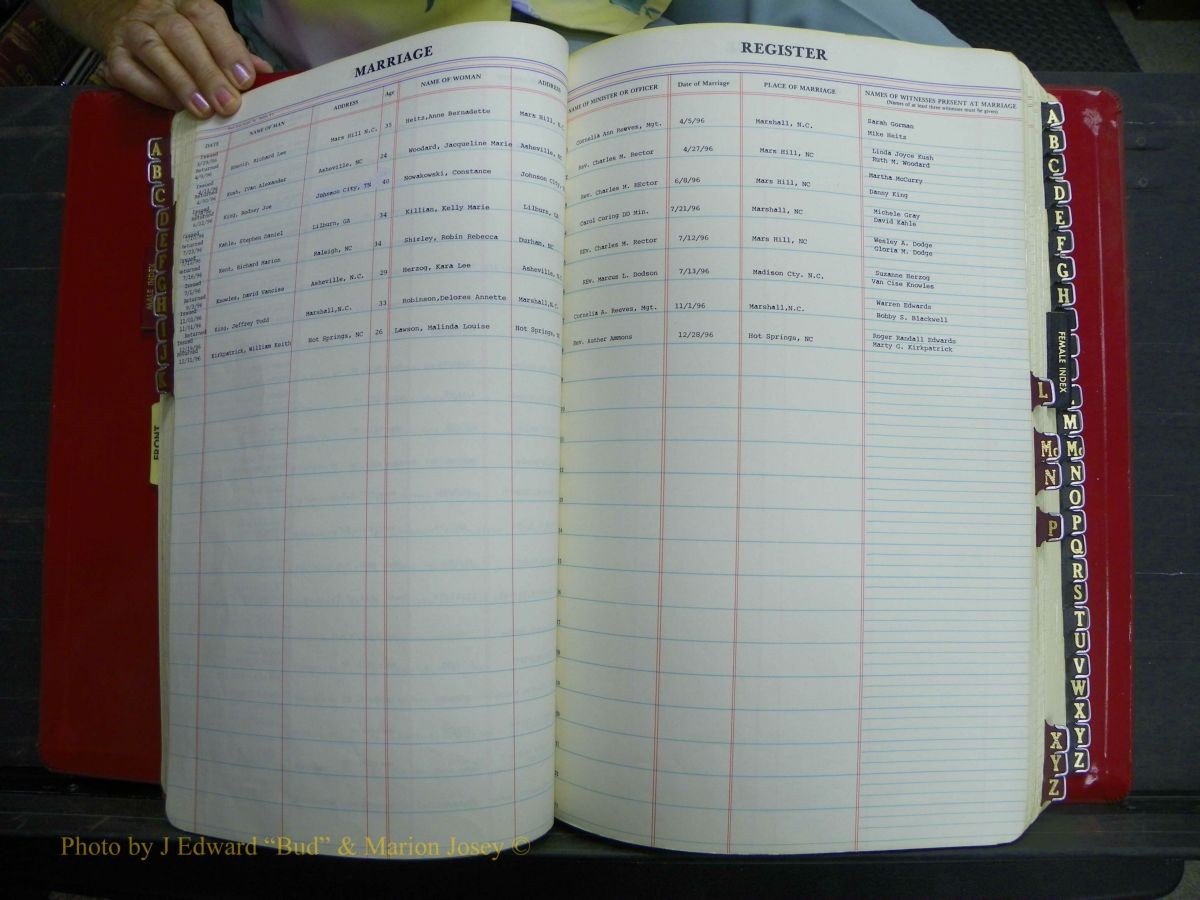 MARRIAGE
DATE NAME OF MAN ADDRESS Age NAME OF WOMAN ADDRESS
Issued
Returned
4/9/96
Koenig, Richard Lee Mars Hill N.C. 35 Heitz,Anne Bernadette Mars Hill, N.C.
Kush, Ivan Alexander Asheville, NC 24 Woodard, Jacqueline Marie Asheville, NC
King, Rodney Joe Johnson City, TN 40 Nowakowski, Constance Johnson City,
Kahle, Stephen Daniel Lilburn, GA 34 Killian, Kelly Marie Lilburn, GA
Kent, Richard Marion Raleigh, NC 34 Shirley, Robin Rebecca Durham, NC
Knowles, David Vancise Asheville, N.C. 29 Herzog, Kara Lee Asheville, N
King, Jeffrey Todd Marshall,N.C. 33 Robinson,Delores Annette Marshall,N.C.
Kirkpatrick, William Keith Hot Springs, NC 26 Lawson, Malinda Louise Hot Springs,
REGISTER
NAME OF MINISTER OR OFFICER Date of Marriage PLACE OF MARRIAGE NAMES OF WITNESSES PRESENT AT MARRIAGE
(Names of at least three witnesses must be given)
Cornelia Ann Reeves, Mgt. 4/5/96 Marshall, N.C. Sarah Gorman
Mike Heitz
Rev. Charles M. Rector 4/27/96 Mars Hill, NC Linda Joyce Kush
Ruth M. Woodard
Rev. Charles M. REctor 6/8/96 Mars Hill, NC Martha McCurry
Danny King
Carol Goring DD Min. 7/21/96 Marshall, NC Michele Gray
David Kahle
REv. Charles M. Rector 7/12/96 Mars Hill, NC Wesley A. Dodge
Gloria M. Dodge
REv. Marcus L. Dodson 7/13/96 Madison Cty. N.C. Suzanne Herzog
Van Cise Knowles
Cornelia A. Reeves, Mgt. 11/1/96 Marshall,N.C. Warren Edwards
Bobby S. Blackwell
Rev. Auther Ammons 12/28/96 Hot Springs, NC Roger Randall Edwards
Marty G. Kirkpatrick
A
B
C
D
E
F
G
H
I
J
K
MALE INDEX
FRONT
A
B
C
D
E
F
G
H
FEMALE INDEX
L
M
Mc
N
O
P
Q
R
S
T
U
V
W
X
Y
Z
L
Mc
N
P
XYZ
Photo by J Edward “Bud” & Marion Josey ©